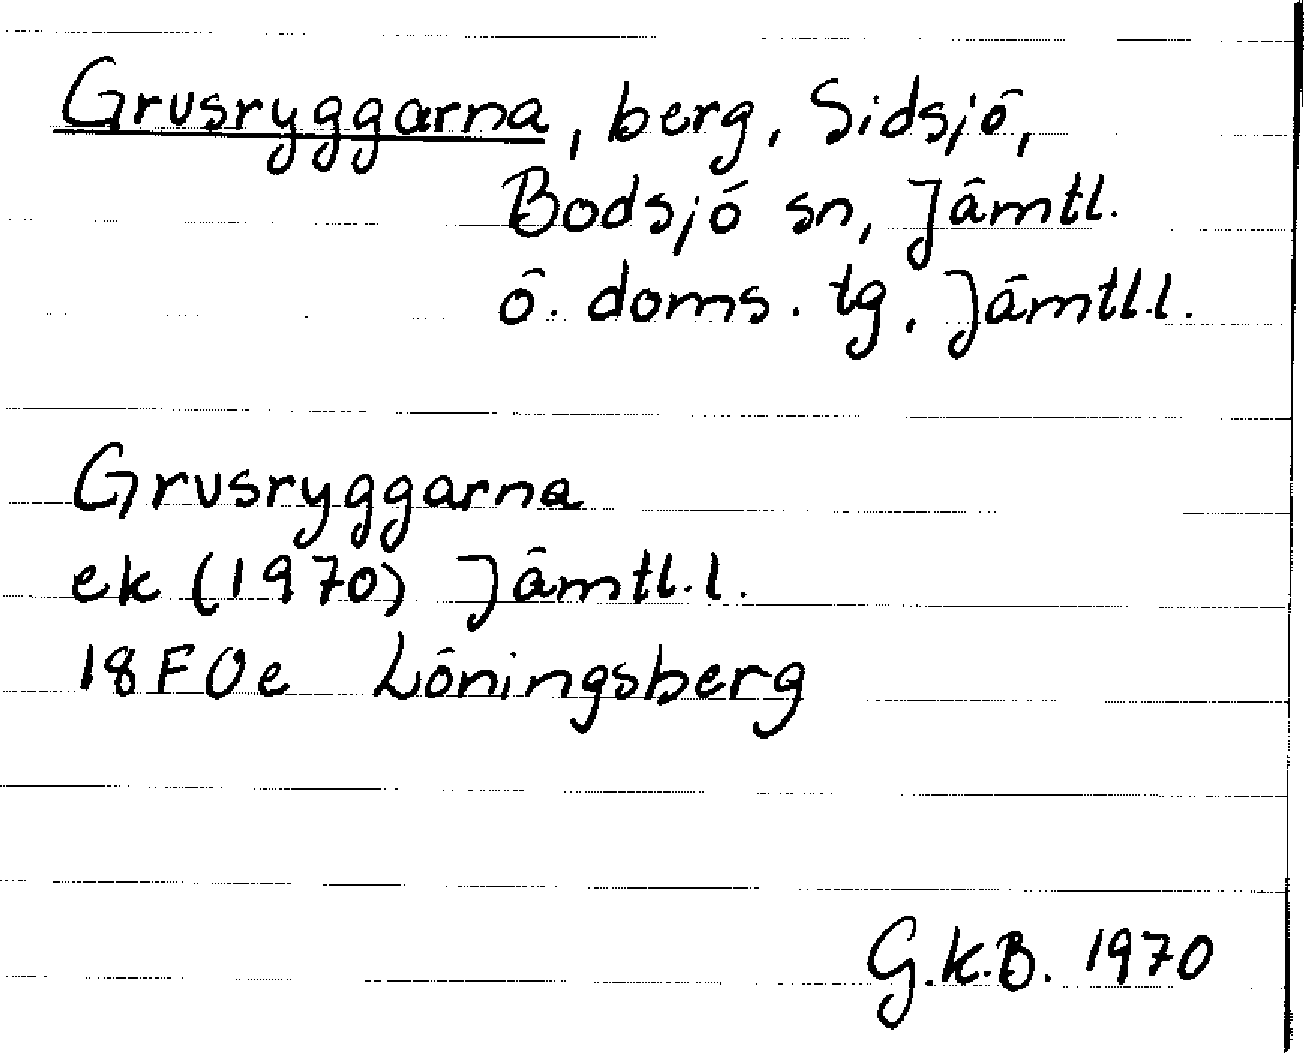 Grusryggarna, berg, Sidsjö,
Bodsjö sn, Jämtl.
ö. doms. tg. Jämtl.l.
Grusryggarna
ek (1970) Jämtl.l.
18F0e Löningsberg
G.K.B. 1970